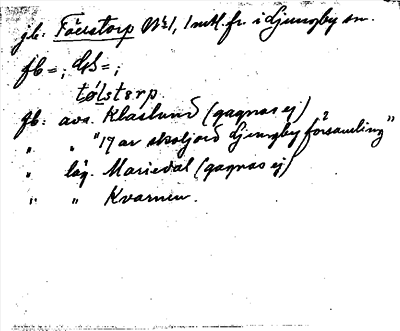 jb: Fåerstorp Nr1, 1 mtl. fr. i Ljungby sn.
fb = ; GS = ;
tøLstørp
gb: avs. Klaslund (gagnas ej)
" " "17 ar skoljord Ljungby församling"
" läg. Mariedal (gagnas ej)
" " Kvarnen.